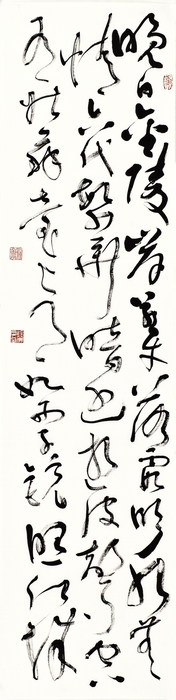 晚日金陵岸草平落霞明水無
情六代繁華暗逐逝波聲空
有姑蘇臺上月如西子鏡照江城